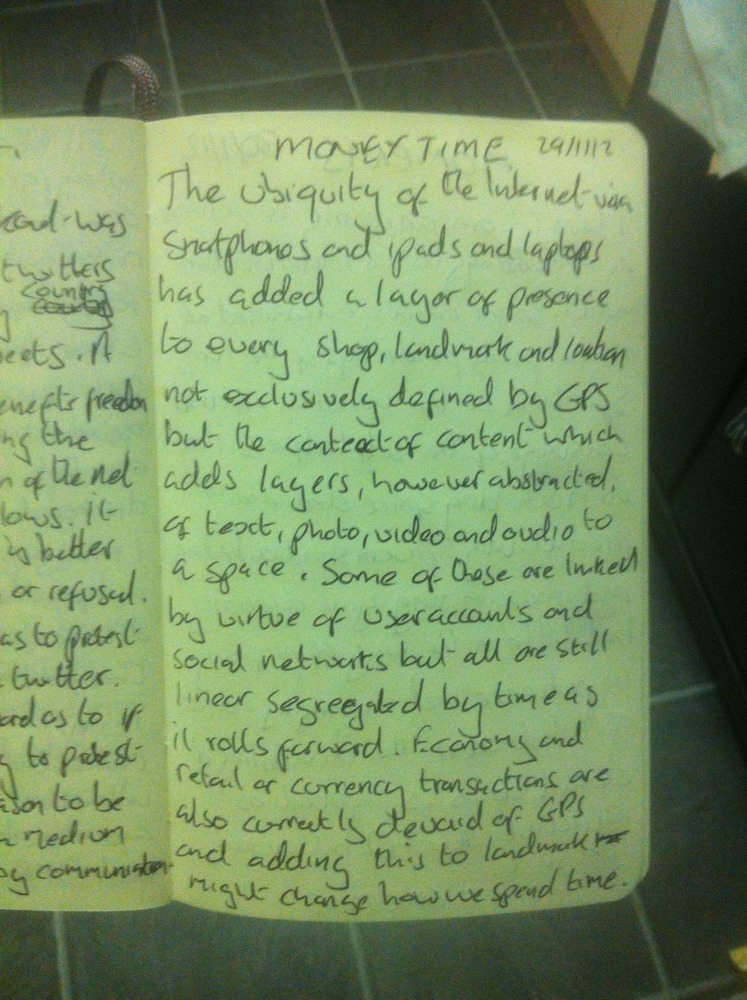 ead was
twitters
country
eets. A
enefits freedom
ng the
n of the net
lows. it
is better
or refusal.
as to protest
twitter.
ard as to if
g to protest
ason to be
medium
by communication
MONEY TIME 29/1/12
The Ubiquity of the Internet via
Smatphones and ipads and laptops
has added a layer of presence
to every shop, landmark and location
not exclusively defined by GPS
but the context of content which
adds layers, however abstracted,
of text, photo, video and audio to
a space. Some of these are linked
by virtue of user accounts and
social networks but all are still
linear segregated by time as
it rolls forward. Economy and
retail or currency transactions are
also currently devoid of GPS
and adding this to landmark
might change how we spend time.